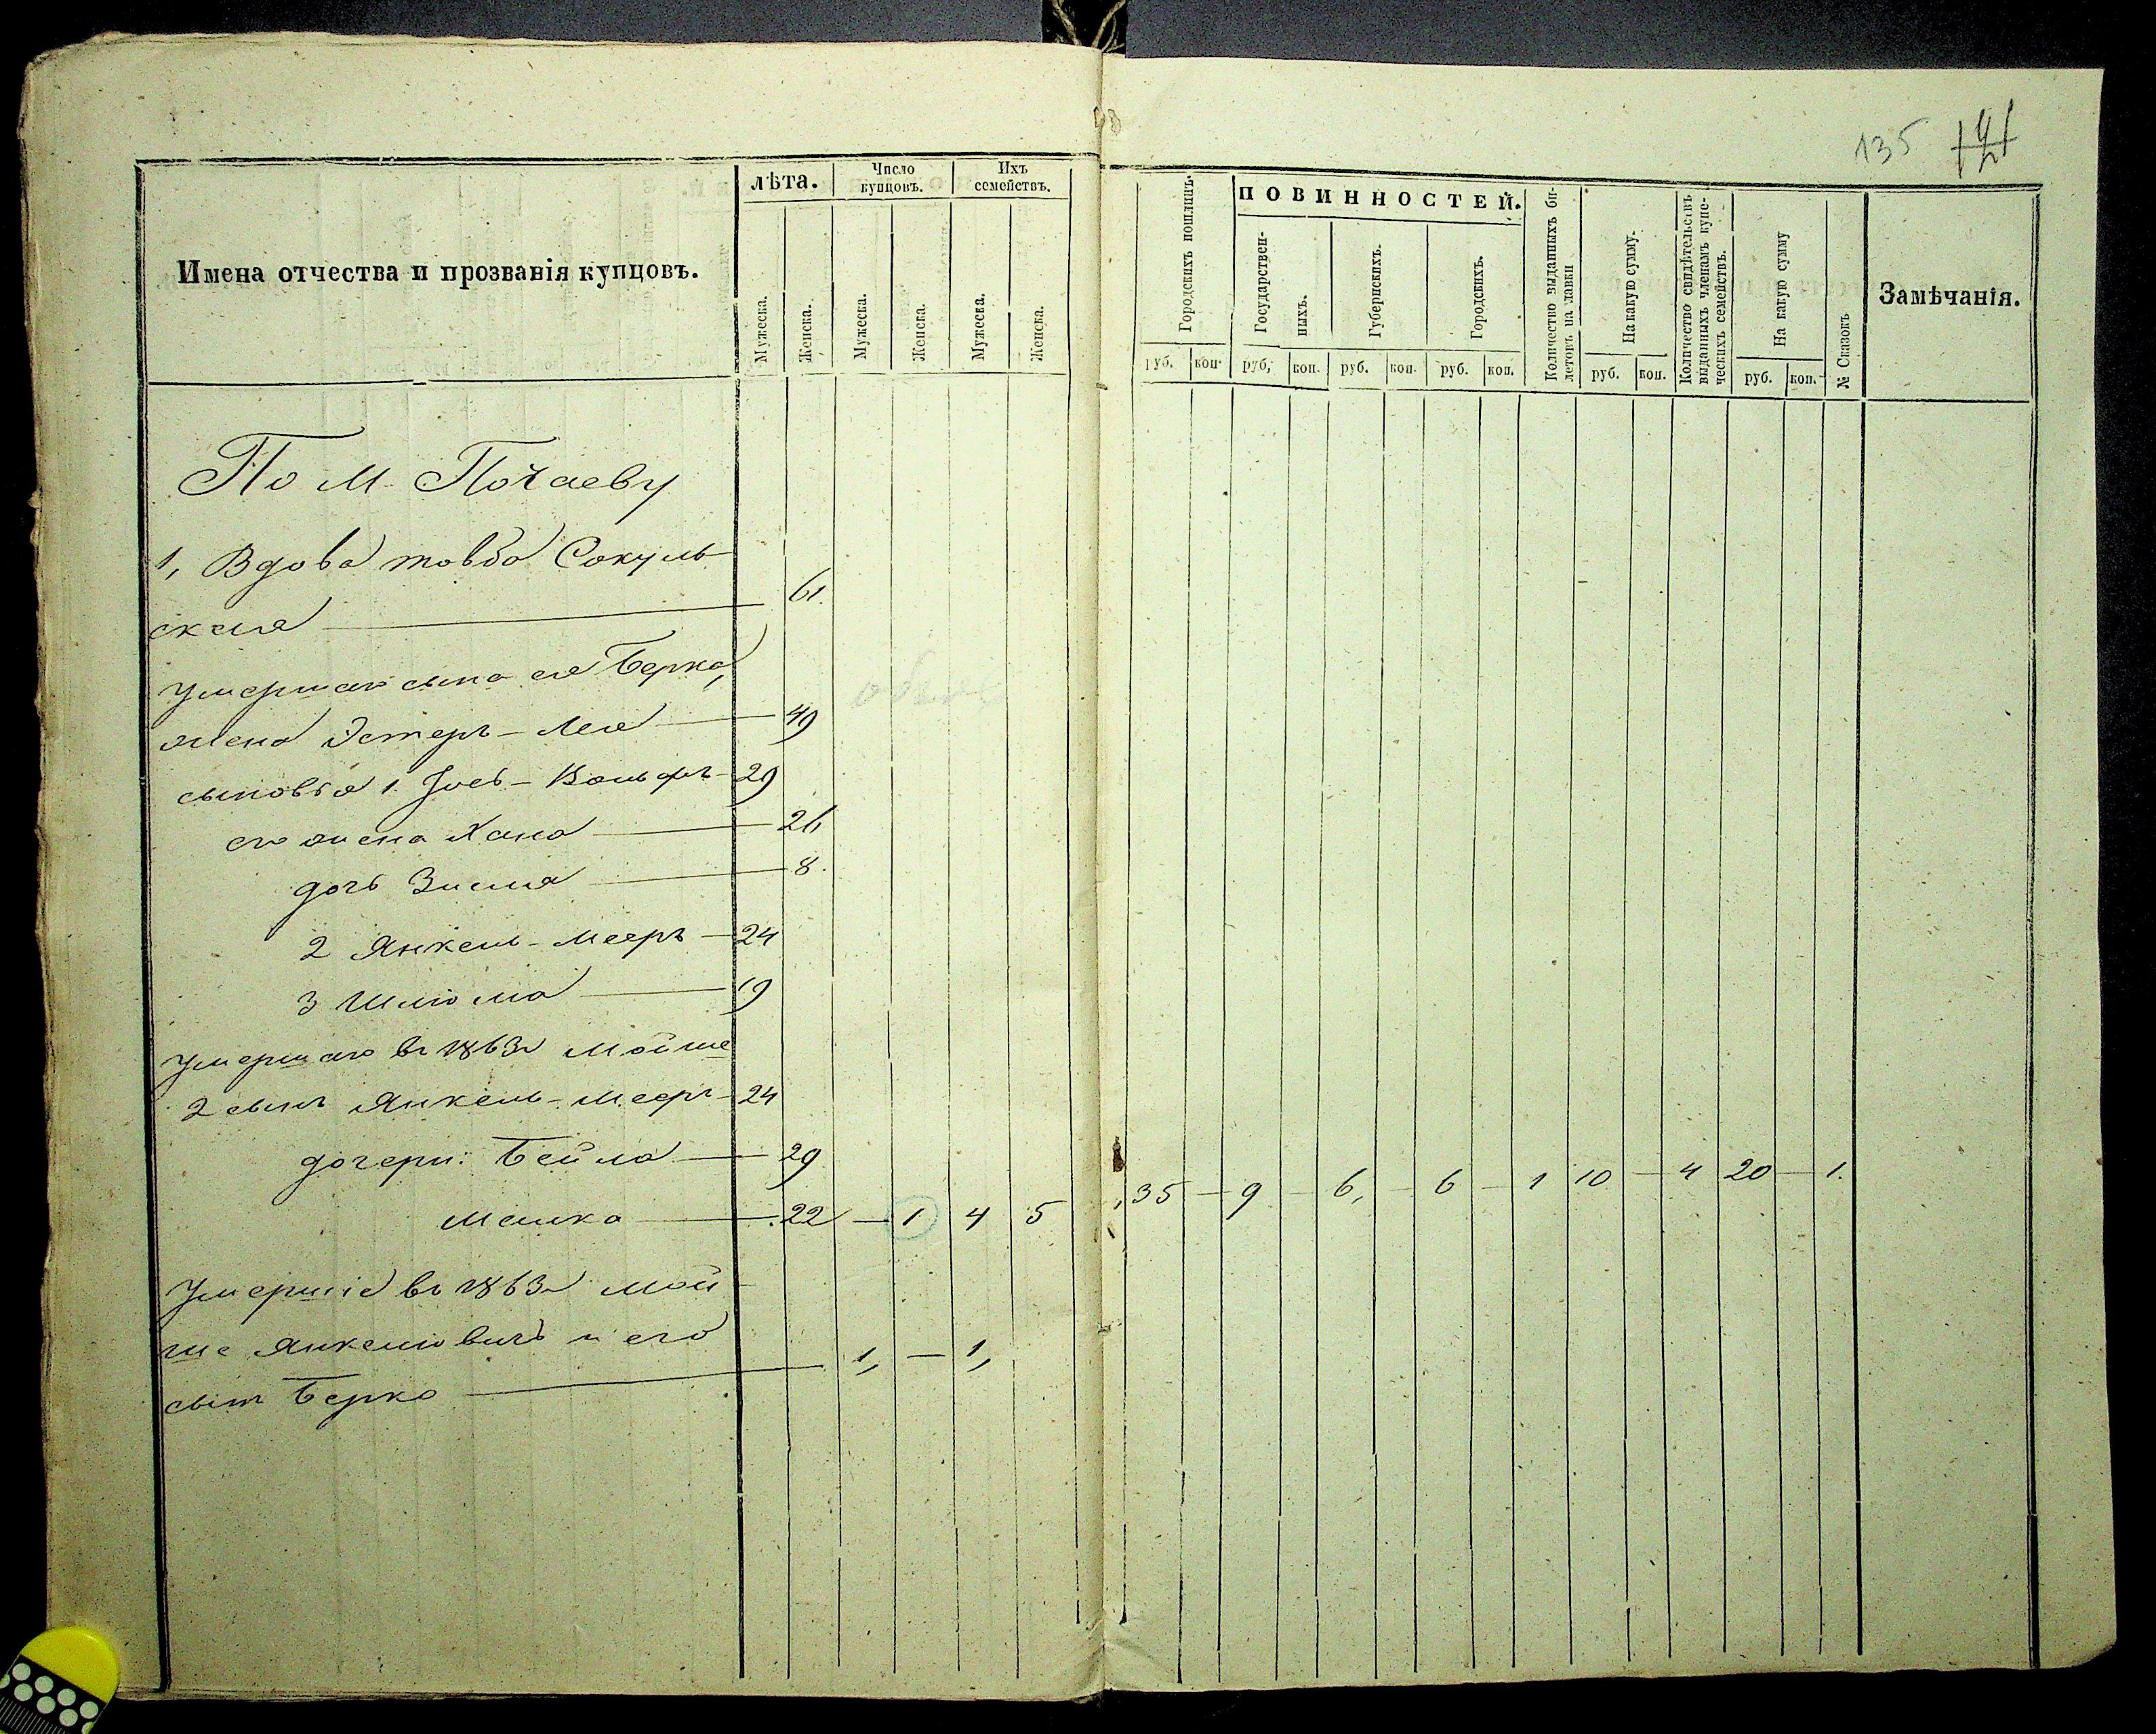 135 121
Имена отчества и прозванія купцовъ.
лѣта.
Число купцовъ.
Ихъ семействъ.
Мужеска.
Женска.
Мужеска.
Женска.
Мужеска.
Женска.
Городскихъ пошлинъ.
ПОВИННОСТЕЙ.
Государственныхъ.
Губернскихъ.
Городскихъ.
Количество выданныхъ билетовъ на лавки
На какую сумму.
Количество свидѣтельствъ выданныхъ членамъ купеческихъ семействъ.
На какую сумму
№ Сказокъ
Замѣчанія.
руб. коп. руб. коп. руб. коп. руб. коп. руб. коп. руб. коп.
По м. Почаеву
1, Вдова товба Сокуль-
ская — 61.
умершаго сына ея Берка,
жена Эстеръ-Лея — 49
сыновья 1. Іось-Вольфъ — 29
его жена Хана — 26
дочь Зисля — 8.
2 Янкель-Мееръ — 24
3 Шлиома — 19
Умершаго въ 1863г Мойше
2 сынъ Янкель-Мееръ — 24
дочери: Бейла — 29
Малка — 22 — 1 4 5 35 — 9 — 6, — 6 — 1 10 — 4 20 — 1.
Умершіе въ 1863г Мой-
ше Янкелиовичъ и его
сынъ Берко — 1, — 1,